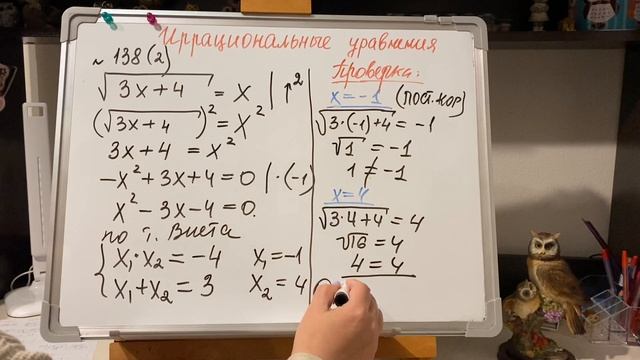 Иррациональные уравнения
~ 138(2)
√3x+4 = x | ↑²
(√3x+4)² = x²
3x+4 = x²
-x²+3x+4=0 | ·(-1)
x²-3x-4=0.
по т. Виета
{ x₁·x₂=-4 x₁=-1
x₁+x₂=3 x₂=4
Проверка:
x=-1 (пост.кор)
√3·(-1)+4 = -1
√1 = -1
1 ≠ -1
x=4
√3·4+4 = 4
√16 = 4
4 = 4